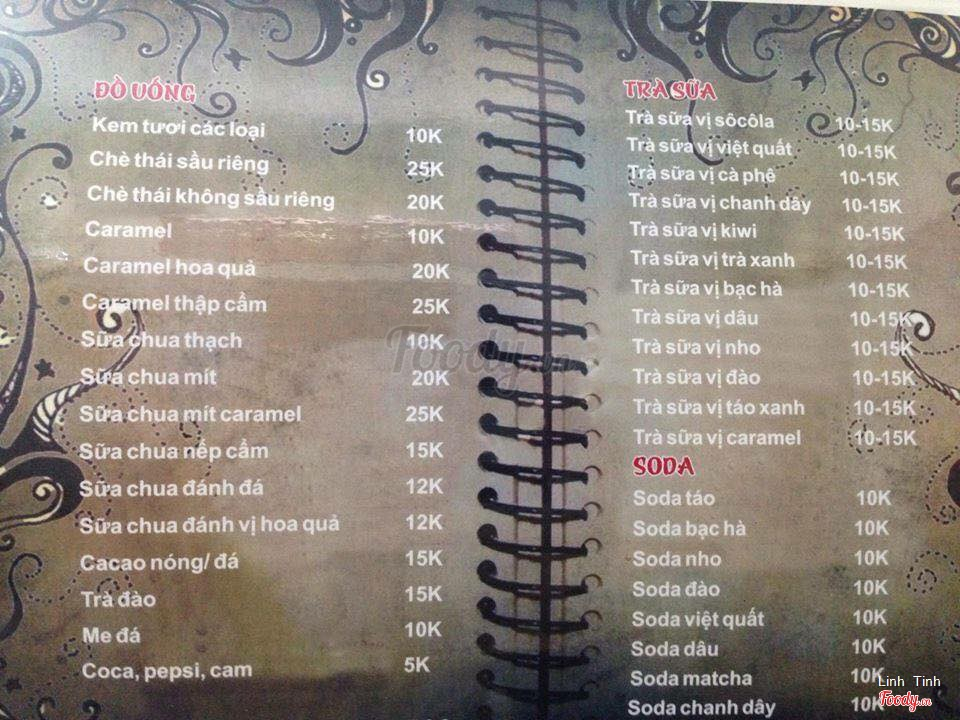 ĐÒ UỐNG
Kem tươi các loại 10K
Chè thái sầu riêng 25K
Chè thái không sầu riêng 20K
Caramel 10K
Caramel hoa quả 20K
Caramel thập cẩm 25K
Sữa chua thạch 10K
Sữa chua mít 20K
Sữa chua mít caramel 25K
Sữa chua nếp cẩm 15K
Sữa chua đánh đá 12K
Sữa chua đánh vị hoa quả 12K
Cacao nóng/ đá 15K
Trà đào 15K
Me đá 10K
Coca, pepsi, cam 5K
TRÀ SỮA
Trà sữa vị sôcôla 10-15K
Trà sữa vị việt quất 10-15K
Trà sữa vị cà phê 10-15K
Trà sữa vị chanh dây 10-15K
Trà sữa vị kiwi 10-15K
Trà sữa vị trà xanh 10-15K
Trà sữa vị bạc hà 10-15K
Trà sữa vị dâu 10-15K
Trà sữa vị nho 10-15K
Trà sữa vị đào 10-15K
Trà sữa vị táo xanh 10-15K
Trà sữa vị caramel 10-15K
SODA
Soda táo 10K
Soda bạc hà 10K
Soda nho 10K
Soda đào 10K
Soda việt quất 10K
Soda dâu 10K
Soda matcha 10K
Soda chanh dây 10K
Foody.vn
Linh Tinh
Foody.vn